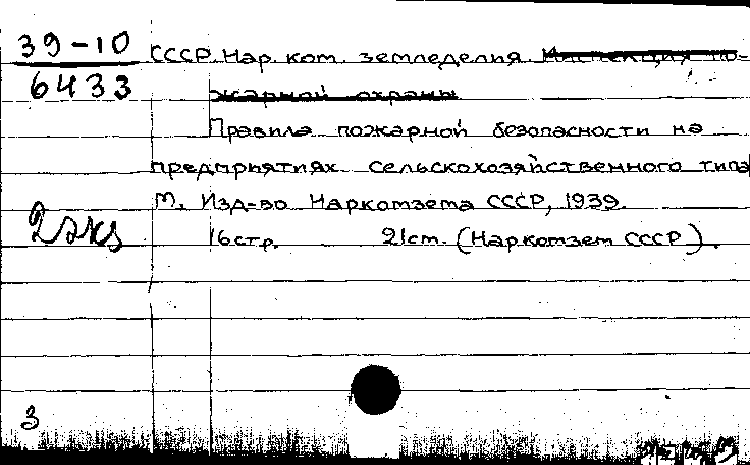 39-10
6433
СССР. Нар. ком. земледелия. Инспекция по-
жарной охраны
Правила пожарной безопасности на
предприятиях сельскохозяйственного типа
М., Изд-во Наркомзема СССР, 1939.
16стр. 21см. (Наркомзем СССР).
2 экз
3